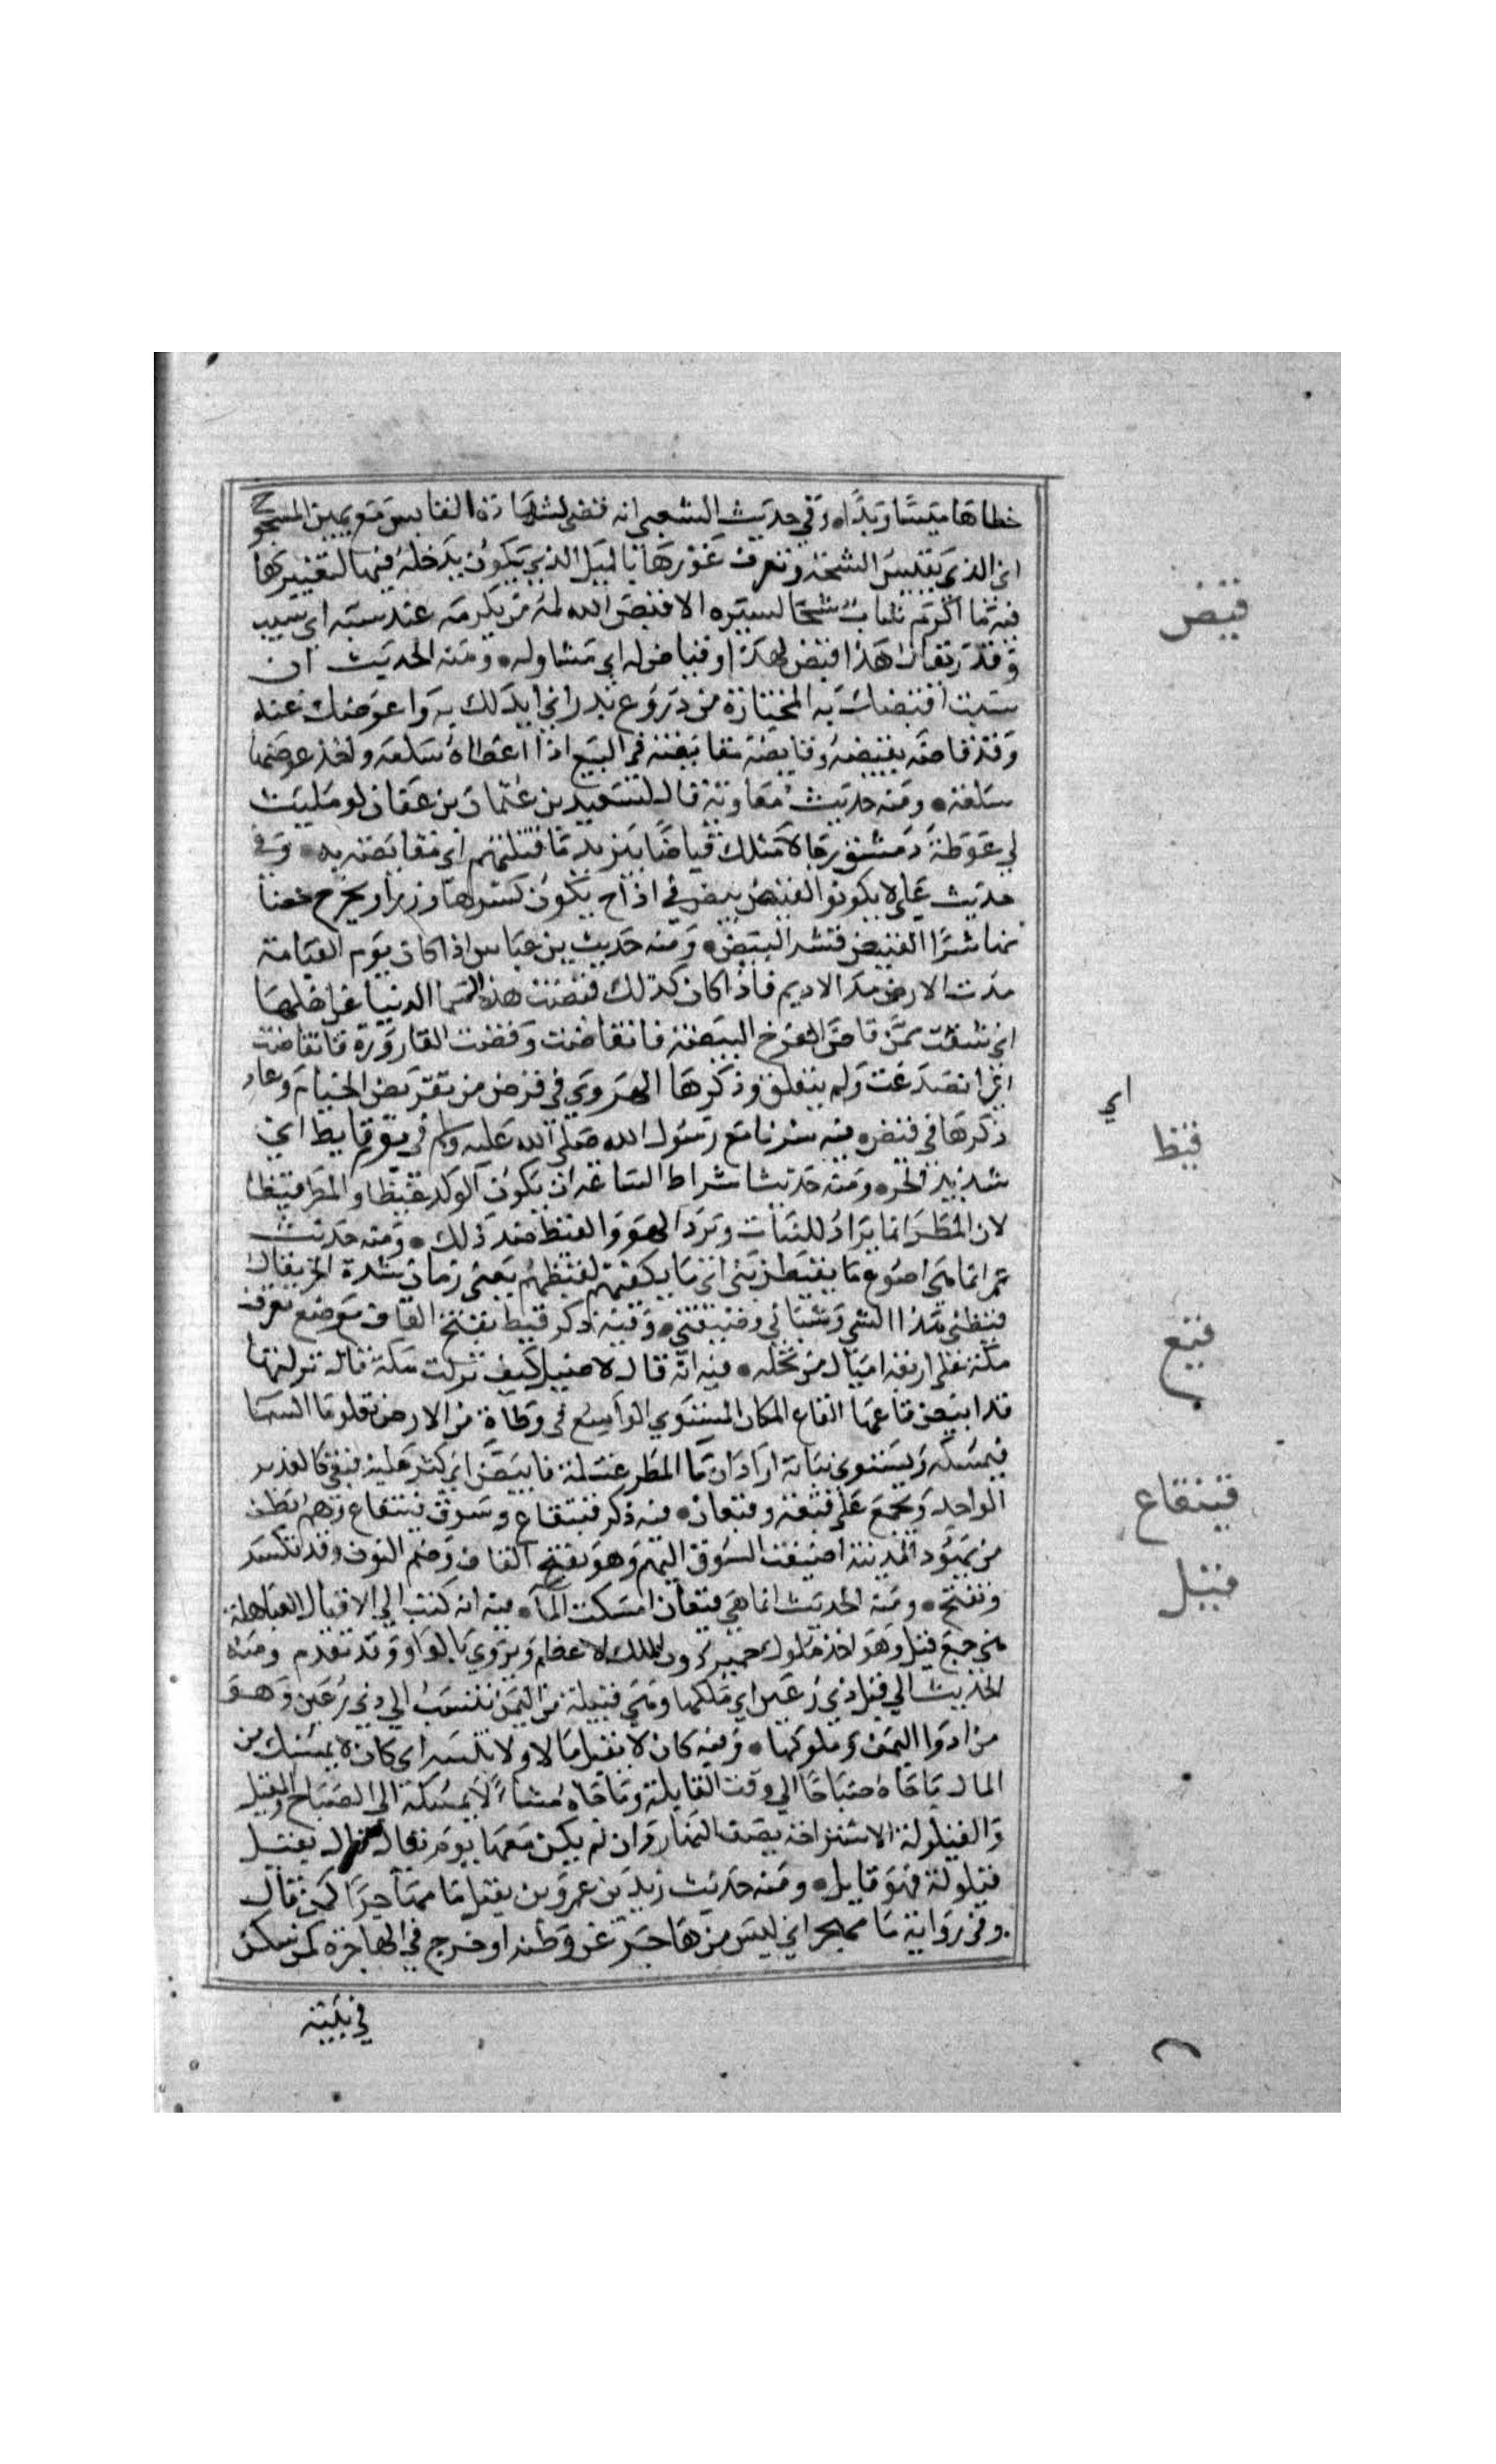 خطاها ميسا وبدا ۝ وفي حديث الشعبي انه قضى بشهادة القايس مع يمين المشجوج
اي الذي يقيس الشجة ويتعرف غورها بالميل الذي يكون يدخله فيها ليعتبرها
قيض
فيه ما اكرم شاب شيخا لسنه الا قيض الله له من يكرمه عند سنه اي سبب
وقدر يقال هذا قيض لهذا وقياض له اي مساو له ۝ ومنه الحديث ان
شيت اقيضك به المختارة من دروع بدر اي ابدلك به واعوضك عنه
وقد قاضه يقيضه وقايضه مقايضة في البيع اذا اعطاه سلعة واخذ عوضها
سلعة ۝ ومنه حديث معاوية قال لسعيد بن عثمان بن عفان لو مليت
لي غوطة دمشق رجالا مثلك قياضا بيزيد ما قبلتهم اي مقايضة به ۝ وفي
حديث علي لا يكونوا كقيض بيض في اداح يكون كسرها وزرا ويخرج حضنا
نها شرا القيض قشر البيض ۝ ومنه حديث بن عباس اذا كان يوم القيامة
مدت الارض مد الاديم فاذا كان كذلك قيضت هذه السما الدنيا عن اهلها
اي شقت من قاض الفرخ البيضة فانقاضت وقضت القارورة فانقاضت
اي انصدعت ولم ينفلق وذكرها الهروي في قرض من تقريض الخيام وعاد
اي
ذكرها في قيض ۝ فيه سرنا مع رسول الله صلى الله عليه وسلم في يوم قايظ اي
قيظ
شديد الحر ۝ ومنه حديث اشراط الساعة ان يكون الولد غيظا والمطر قيظا
لان المطر انما يراد للنبات وبرد الهوى والقيظ ضد ذلك ۝ ومنه حديث
عمر انما هي اصوع ما يقيظن بني اي ما يكفيهم لقيظهم يعني زمان شدة الحر يقال
قيظني هذا الشي وشتاني وصيفني ۝ وفيه ذكر قيظ بفتح القاف موضع بقرب
مكة على اربعة اميال من نخلة ۝ فيه انه قال لاصيل كيف تركت مكة قال تركتها
قيع
قد ابيض قاعها القاع المكان المستوي الواسع في وطاة من الارض يعلوها السما
فيمسكه ويستوي نباته اراد ان ما المطر غسله فابيض اي كثر عليه فبقي كالغدير
الواحد ويجمع على قيعة وقيعان ۝ فيه ذكر قينقاع وسوق قينقاع وهم بطن
قينقاع
من يهود المدينة اضيفت السوق اليهم وهو بفتح القاف وضم النون وقد تكسر
وتفتح ۝ ومنه الحديث انما هي قيعان امسكت الماء ۝ فيه انه كتب الي الاقيال العباهلة
قيل
هي جمع قيل وهو احد ملوك حمير دون الملك الاعظم ويروي بالواو وقد تقدم ومنه
الحديث الي قيل ذي رعين اي ملكها وهي قبيلة من اليمن تنسب الي ذي رعين وهو
من اذوا اليمن وملوكها ۝ وفيه كان لا يقيل مالا ولا يبيته اي كان لا يمسك من
المال ما جاه صباحا الي وقت القايلة وما جاه مساء لا يمسكه الي الصباح والمقيل
والقيلولة الاستراحة نصف النهار وان لم يكن معها نوم يقال قال يقيل
قيلولة فهو قايل ۝ ومنه حديث زيد بن عمرو بن نفيل ما مهاجرا كمن قال
وفي رواية ما مهجر اي ليس من هاجر عن وطنه او خرج في الهاجرة كمن سكن
في بيته